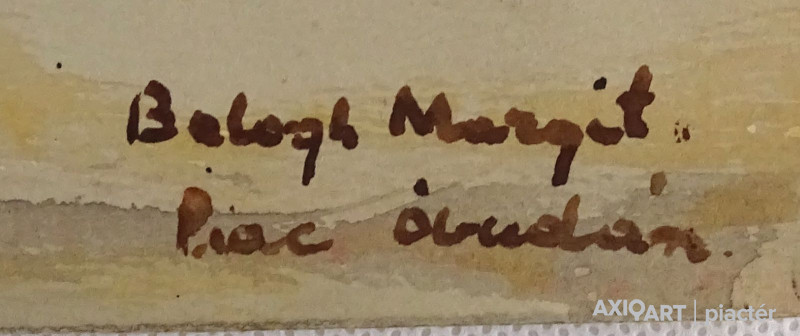 Balogh Margit:
Piac Óbudán.
AXIOART | piactér